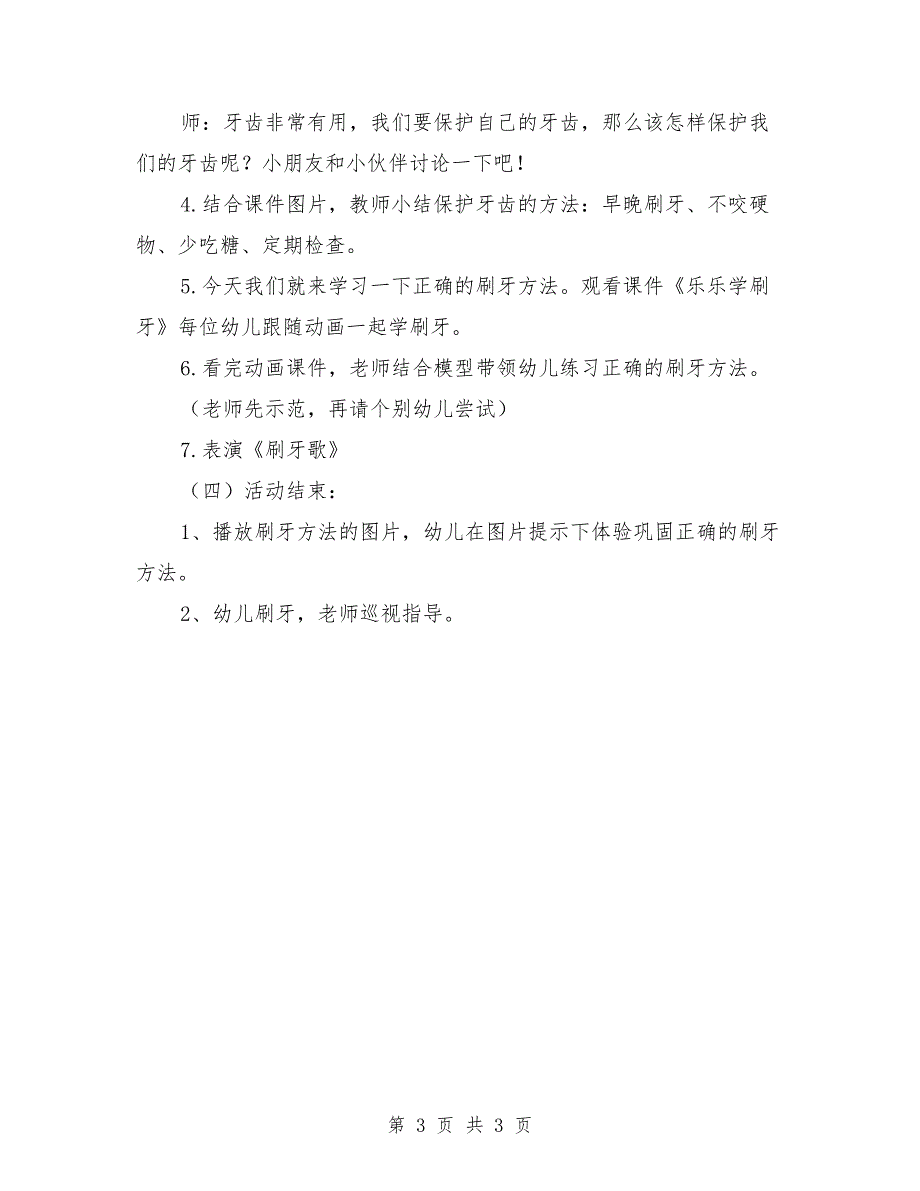 师：牙齿非常有用，我们要保护自己的牙齿，那么该怎样保护我
们的牙齿呢？小朋友和小伙伴讨论一下吧！
4.结合课件图片，教师小结保护牙齿的方法：早晚刷牙、不咬硬
物、少吃糖、定期检查。
5.今天我们就来学习一下正确的刷牙方法。观看课件《乐乐学刷
牙》每位幼儿跟随动画一起学刷牙。
6.看完动画课件，老师结合模型带领幼儿练习正确的刷牙方法。
（老师先示范，再请个别幼儿尝试）
7.表演《刷牙歌》
（四）活动结束：
1、播放刷牙方法的图片，幼儿在图片提示下体验巩固正确的刷牙
方法。
2、幼儿刷牙，老师巡视指导。
第 3 页 共 3 页